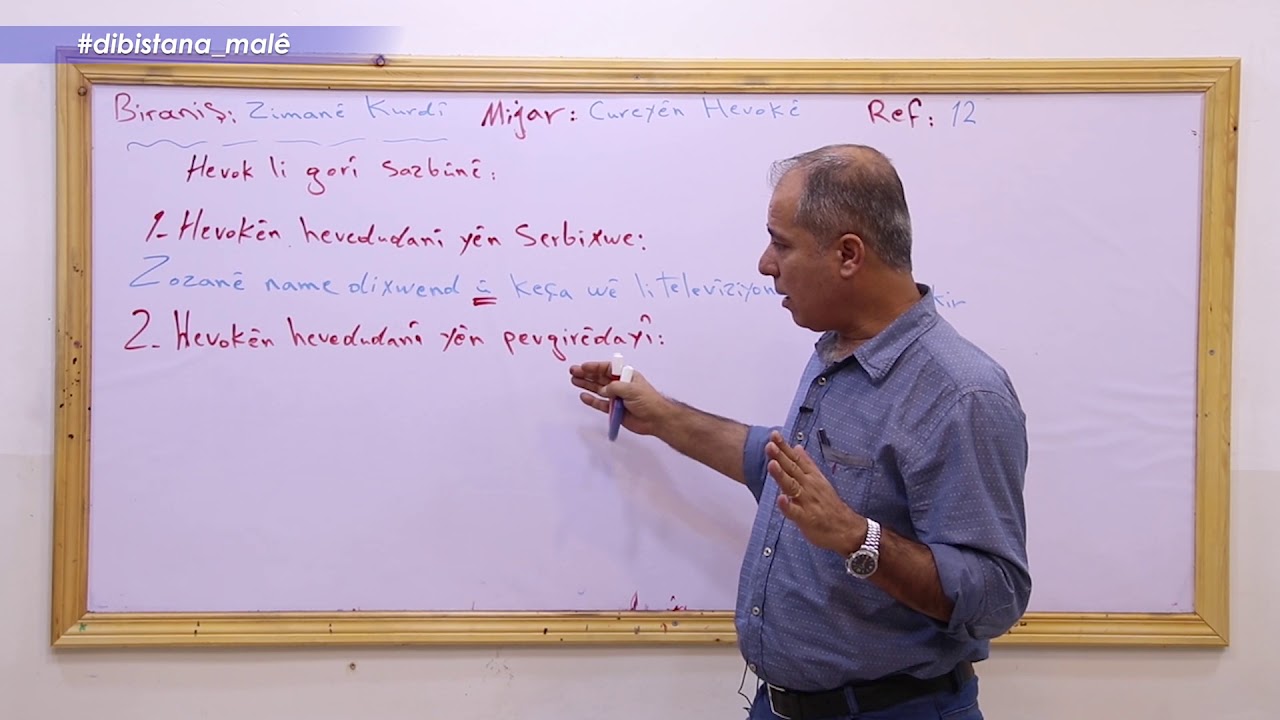 #dibistana_malê
Biraniş: Zimanê Kurdî Mijar: Cureyên Hevokê Ref: 12
Hevok li gorî sazbûnê:
1- Hevokên hevedudanî yên Serbixwe:
Zozanê name dixwend û keça wê li televîziyon
2- Hevokên hevedudanî yên pevgirêdayî: